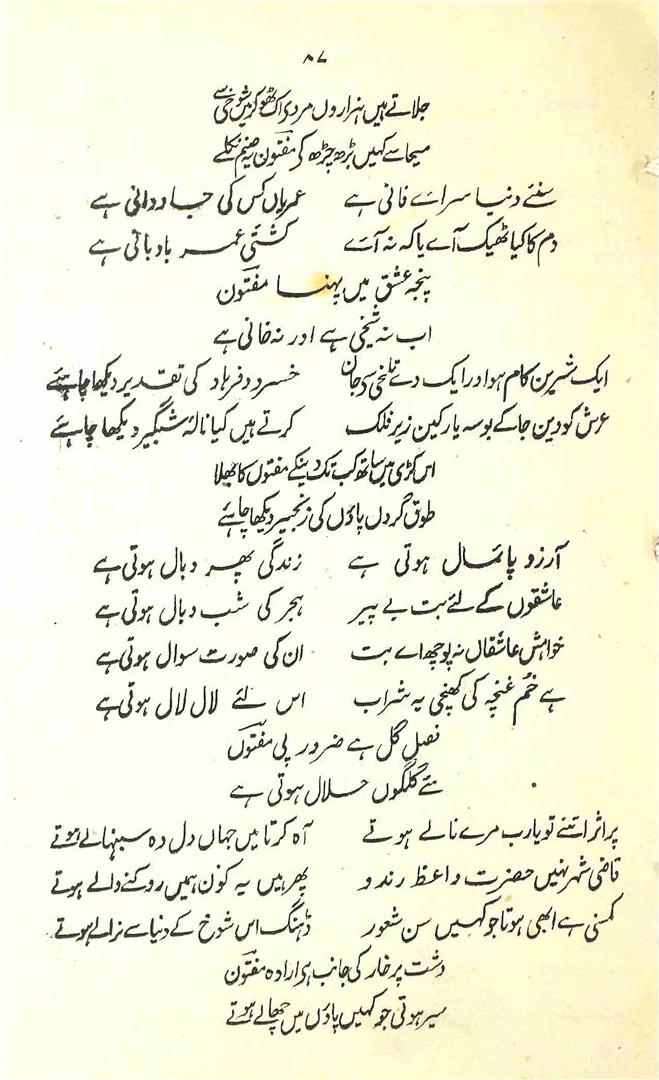 ۸۷
جلاتے ہیں ہزاروں مردی اک ٹھوکر میں شوخی سے
مسیحا سے کہیں بڑھ چڑھ کی مفتون یہ صنم نکلے
سنئے دنیا سراے فانی ہے عمر یاں کس کی جاودانی ہے
دم کا کیا ٹھیک آے یا کہ نہ آے کشتیٔ عمر بادبانی ہے
پنجہ عشق میں پہنسا مفتون
اب نہ شیخی ہے اور نہ خانی ہے
ایک شیرین کام ہو اور ایک دے تلخی سی جان خسرو و فرہاد کی تقدیر دیکھا چاہئے
عرش کو دین جا کے بوسہ یار کین زیر فلک کرتے ہیں کیا نالۂ شبگیر دیکھا چاہئے
اس کڑی میں ساتھ کب تک دینگے مفتوں کا بھلا
طوق گردں پاؤں کی زنجیر دیکھا چاہئے
آرزو پائمال ہوتی ہے زندگی پھر وبال ہوتی ہے
عاشقوں کے لئے بت بے پیر ہجر کی شب وبال ہوتی ہے
خواہش عاشقاں نہ پوچھ اے بت ان کی صورت سوال ہوتی ہے
ہے خُم غنچہ کی کھنچی یہ شراب اس لئے لال لال ہوتی ہے
فصل گل ہے ضرور پی مفتوں
مئے گلگوں حلال ہوتی ہے
پر اثر اتنے تو یارب مرے نالے ہوتے آہ کرتا میں جہاں دل وہ سبنہالے ہوتے
قاضی شہر نہیں حضرت واعظ رندو پھر ہیں یہ کون ہمیں روکنے والے ہوتے
کمسنی ہے ابھی ہوتا جو کہیں سن شعور ڈہنگ اس شوخ کے دنیا سے نرالے ہوتے
دشت پر خار کی جانب ہی ارادہ مفتون
سیر ہوتی جو کہیں پاؤں میں چھالے ہوتے